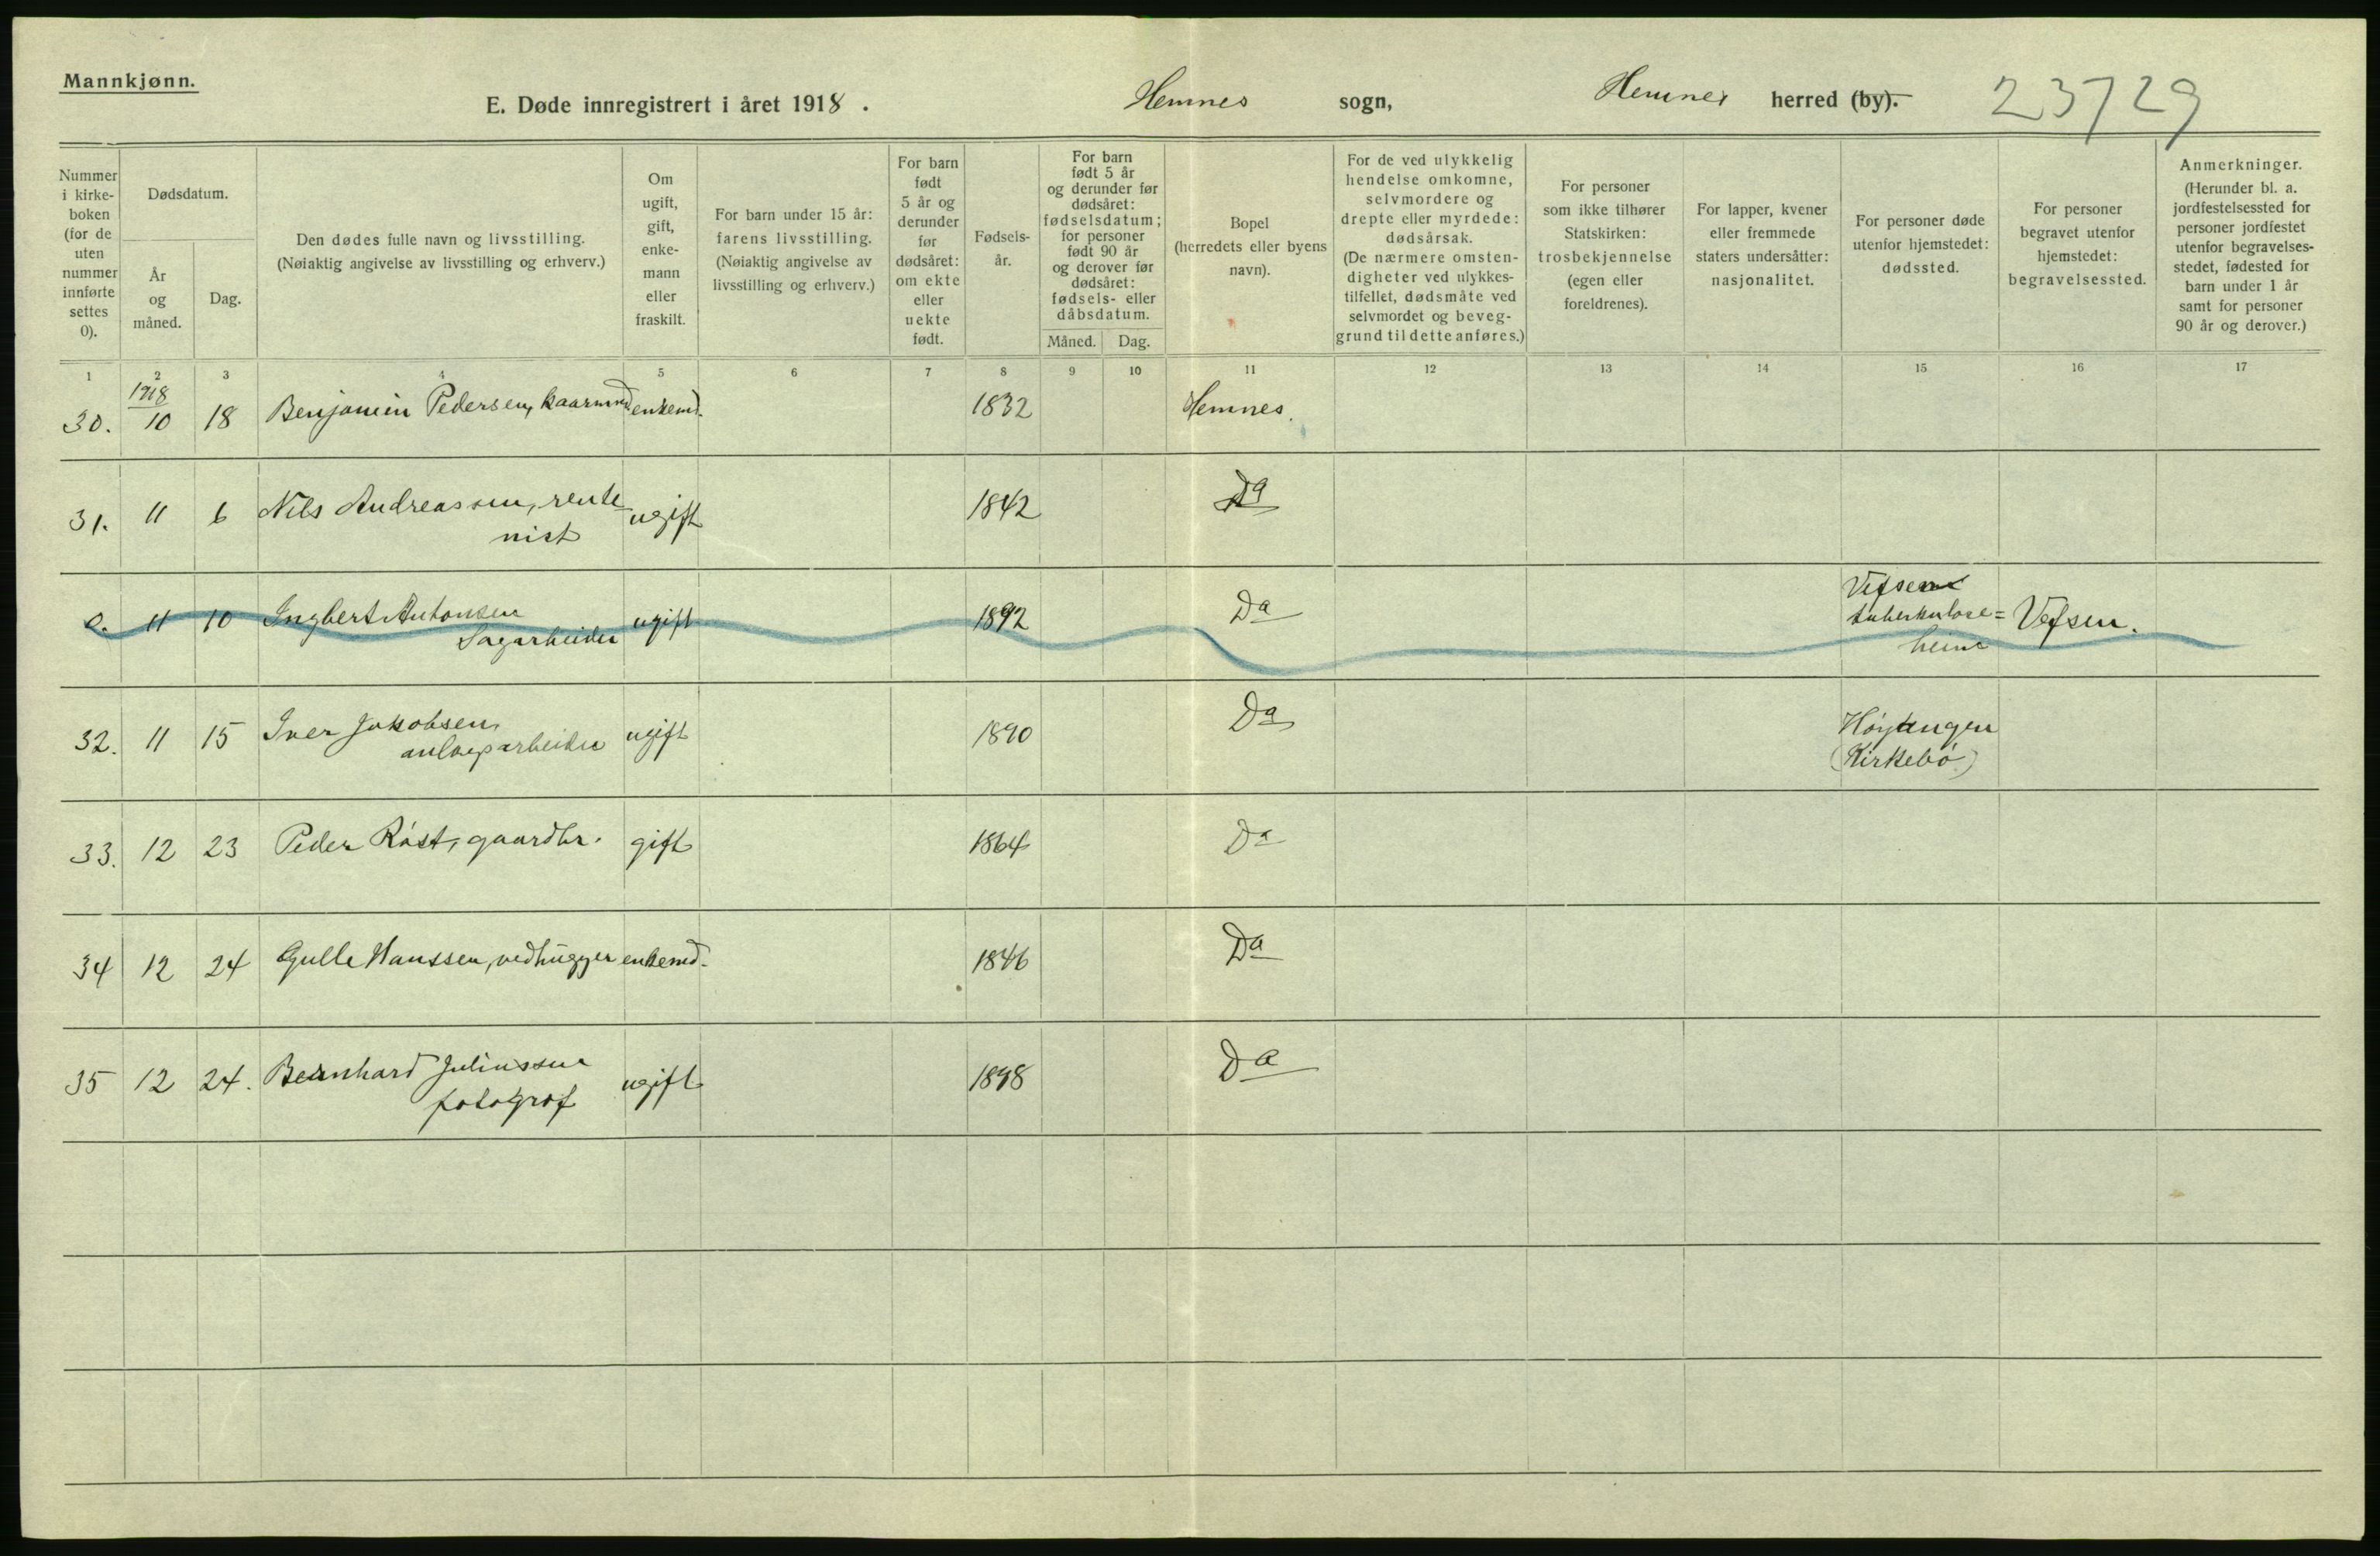 Mannkjønn.
E. Døde innregistrert i året 1918. Hemnes sogn, Hemnes herred (by). 23729
Nummer i kirke- boken (for de uten nummer innførte settes 0).
Dødsdatum.
År og måned.
Dag.
Den dødes fulle navn og livsstilling.
(Nøiaktig angivelse av livsstilling og erhverv.)
Om ugift, gift, enke- mann eller fraskilt.
For barn under 15 år: farens livsstilling. (Nøiaktig angivelse av livsstilling og erhverv.)
For barn født 5 år og derunder før dødsåret: om ekte eller uekte født.
Fødsels- år.
For barn født 5 år og derunder før dødsåret: fødselsdatum; for personer født 90 år og derover før dødsåret: fødsels- eller dåbsdatum.
Måned. Dag.
Bopel (herredets eller byens navn).
For de ved ulykkelig hendelse omkomne, selvmordere og drepte eller myrdede: dødsårsak. (De nærmere omsten- digheter ved ulykkes- tilfellet, dødsmåte ved selvmordet og beveg- grund til dette anføres.)
For personer som ikke tilhører Statskirken: trosbekjennelse (egen eller foreldrenes).
For lapper, kvener eller fremmede staters undersåtter: nasjonalitet.
For personer døde utenfor hjemstedet: dødssted.
For personer begravet utenfor hjemstedet: begravelsessted.
Anmerkninger. (Herunder bl. a. jordfestelsessted for personer jordfestet utenfor begravelses- stedet, fødested for barn under 1 år samt for personer 90 år og derover.)
1 2 3 4 5 6 7 8 9 10 11 12 13 14 15 16 17
1918
30. 10 18 Benjamin Pedersen, kaarmd enkemd. 1832 Hemnes.
31. 11 6 Nils Andreassen, rente
nist ugift 1842 Do
0. 11 10 Ingbert Antonsen
Sagarbeider ugift 1892 Do Vefsen
tuberkulose=
heim Vefsen.
32. 11 15 Iver Jakobsen,
anlægsarbeider ugift 1890 Do Høyangen
(Kirkebø)
33. 12 23 Peder Røst, gaardbr. gift 1864 Do
34 12 24 Gulle Hanssen, vedhugger enkemd. 1846 Do
35 12 24. Bernhard Juliussen
fotograf ugift 1898 Do